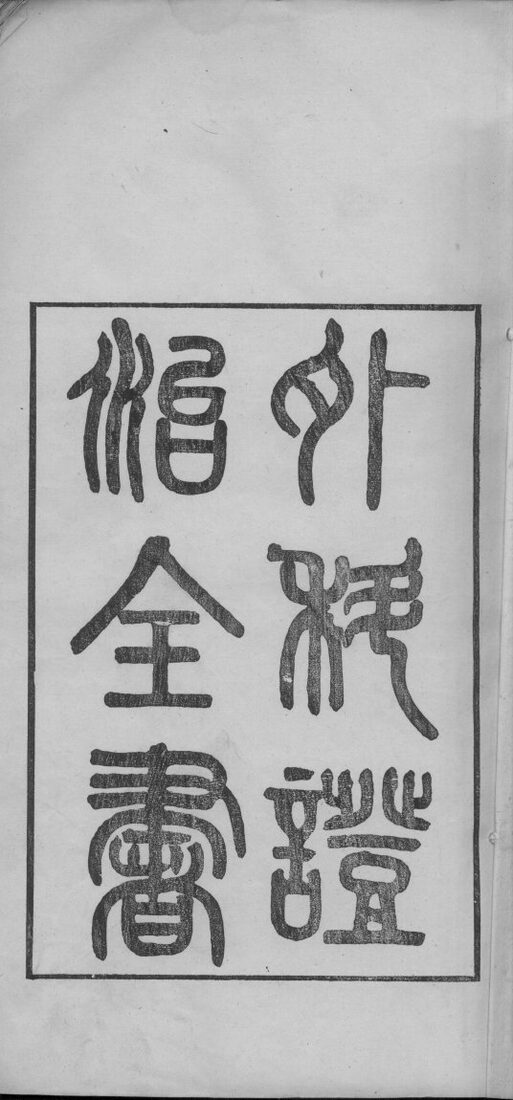 外科證
治全書